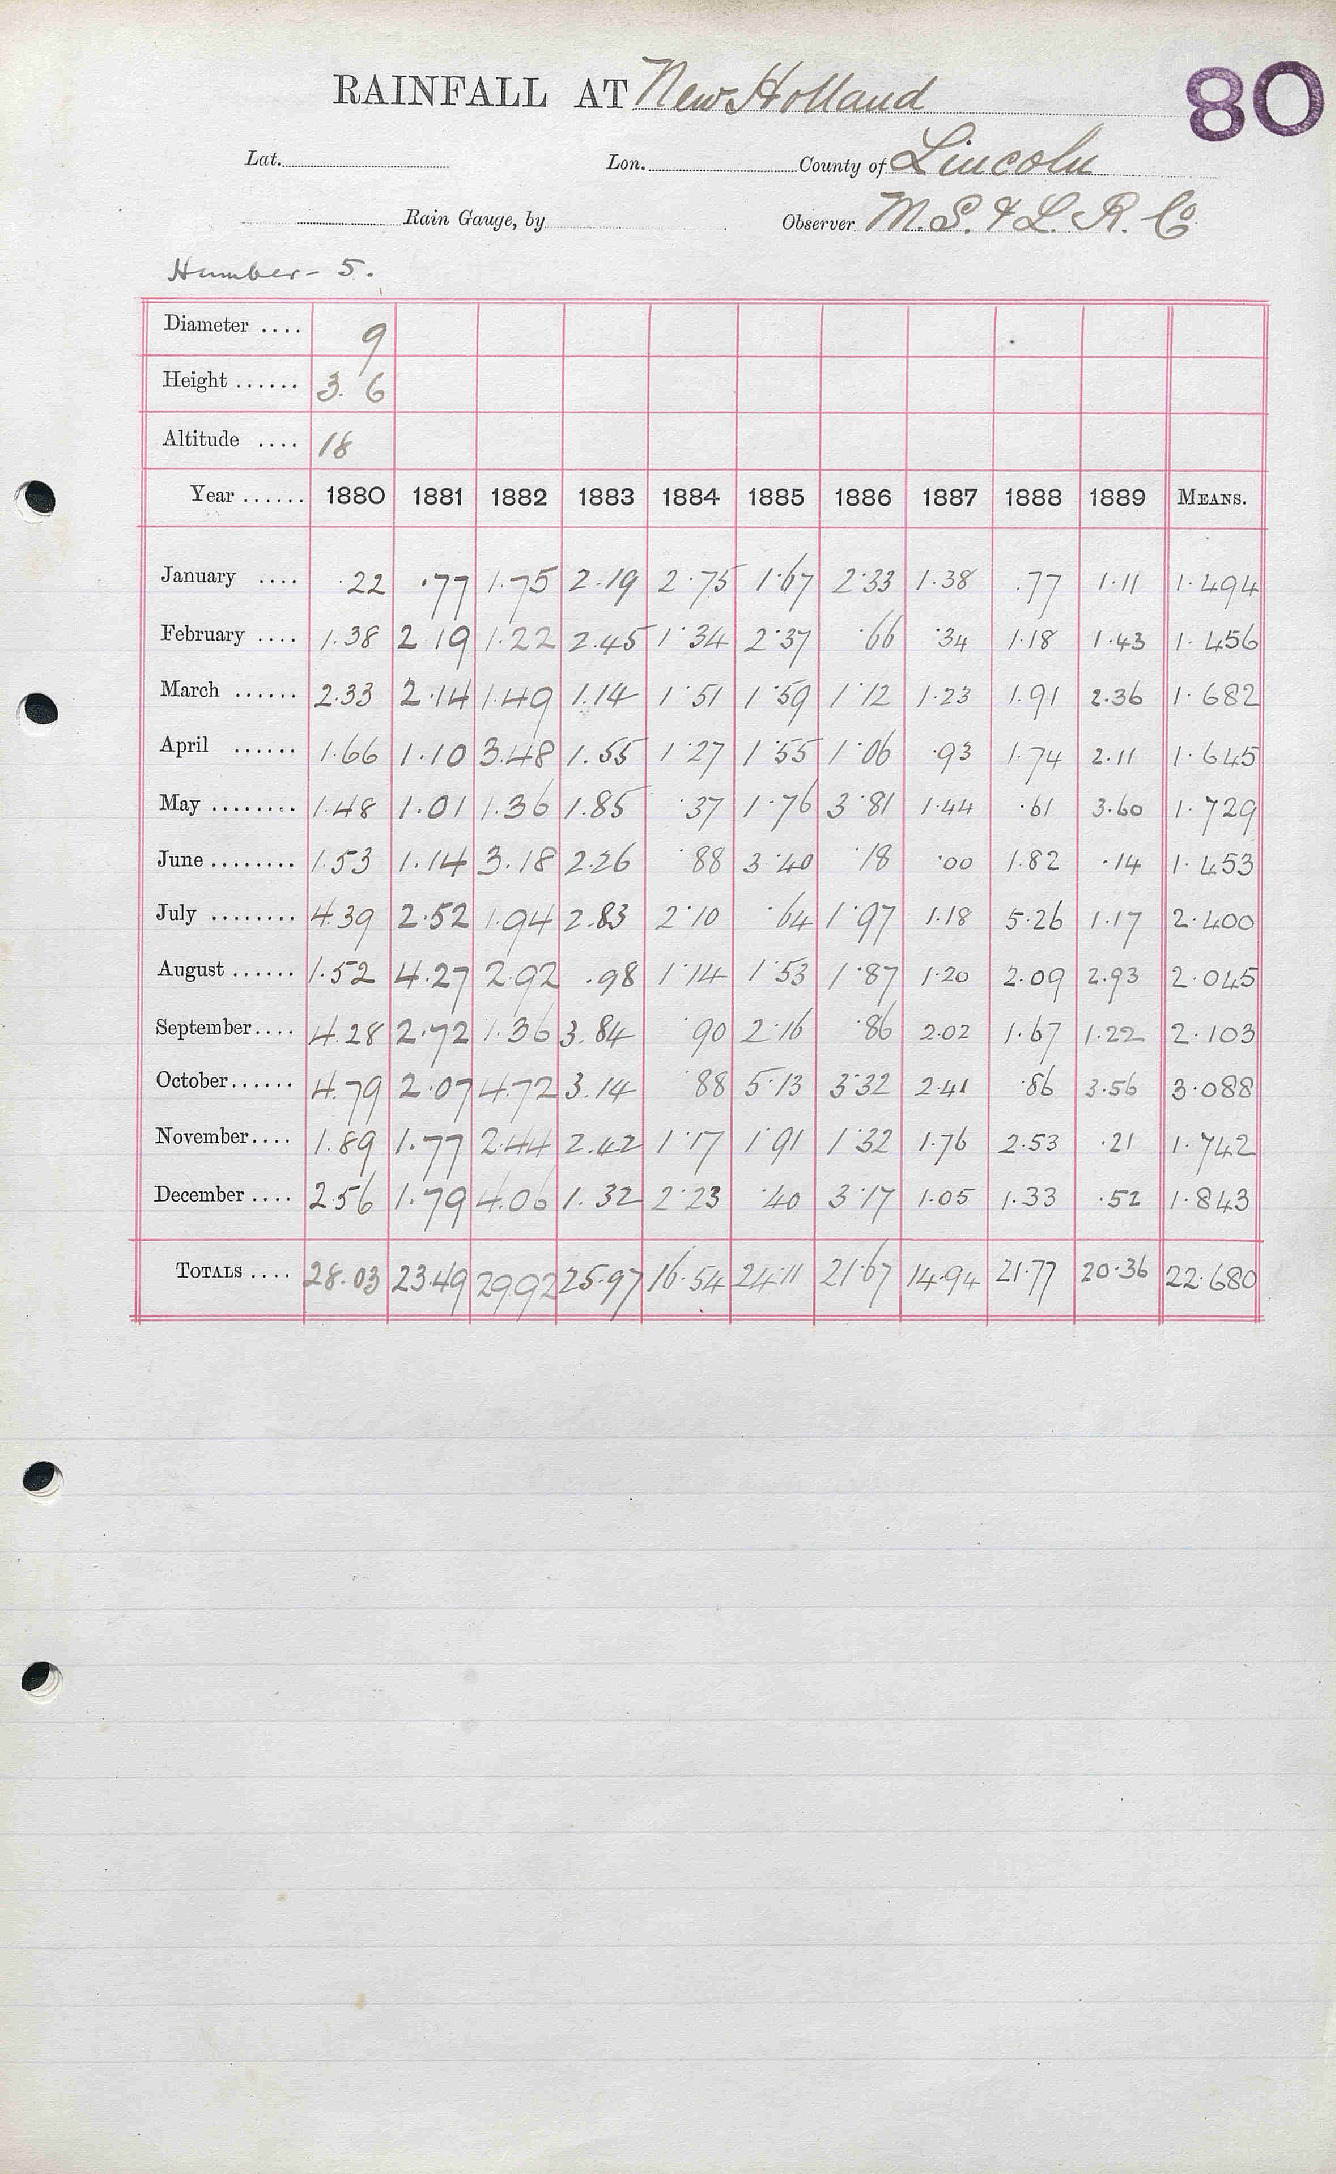 80
RAINFALL AT New Holland
Lat. Lon. County of Lincoln
Rain Gauge, by Observer M. S. & L. R. Co
Humber - 5.
Diameter .... 9
Height ...... 3. 6
Altitude .... 18
Year ...... 1880 1881 1882 1883 1884 1885 1886 1887 1888 1889 MEANS.
January .... .22 .77 1.75 2.19 2.75 1.67 2.33 1.38 .77 1.11 1.494
February .... 1.38 2.19 1.22 2.45 1.34 2.37 .66 .34 1.18 1.43 1.456
March ...... 2.33 2.14 1.49 1.14 1.51 1.59 1.12 1.23 1.91 2.36 1.682
April ...... 1.66 1.10 3.48 1.55 1.27 1.55 1.06 .93 1.74 2.11 1.645
May ........ 1.48 1.01 1.36 1.85 .37 1.76 3.81 1.44 .61 3.60 1.729
June ........ 1.53 1.14 3.18 2.26 .88 3.40 .18 .00 1.82 .14 1.453
July ........ 4.39 2.52 1.94 2.83 2.10 .64 1.97 1.18 5.26 1.17 2.400
August ...... 1.52 4.27 2.92 .98 1.14 1.53 1.87 1.20 2.09 2.93 2.045
September .... 4.28 2.72 1.36 3.84 .90 2.16 .86 2.02 1.67 1.22 2.103
October ...... 4.79 2.07 4.72 3.14 .88 5.13 3.32 2.41 .86 3.56 3.088
November .... 1.89 1.77 2.44 2.42 1.17 1.91 1.32 1.76 2.53 .21 1.742
December .... 2.56 1.79 4.06 1.32 2.23 .40 3.17 1.05 1.33 .52 1.843
TOTALS .... 28.03 23.49 29.92 25.97 16.54 24.11 21.67 14.94 21.77 20.36 22.680